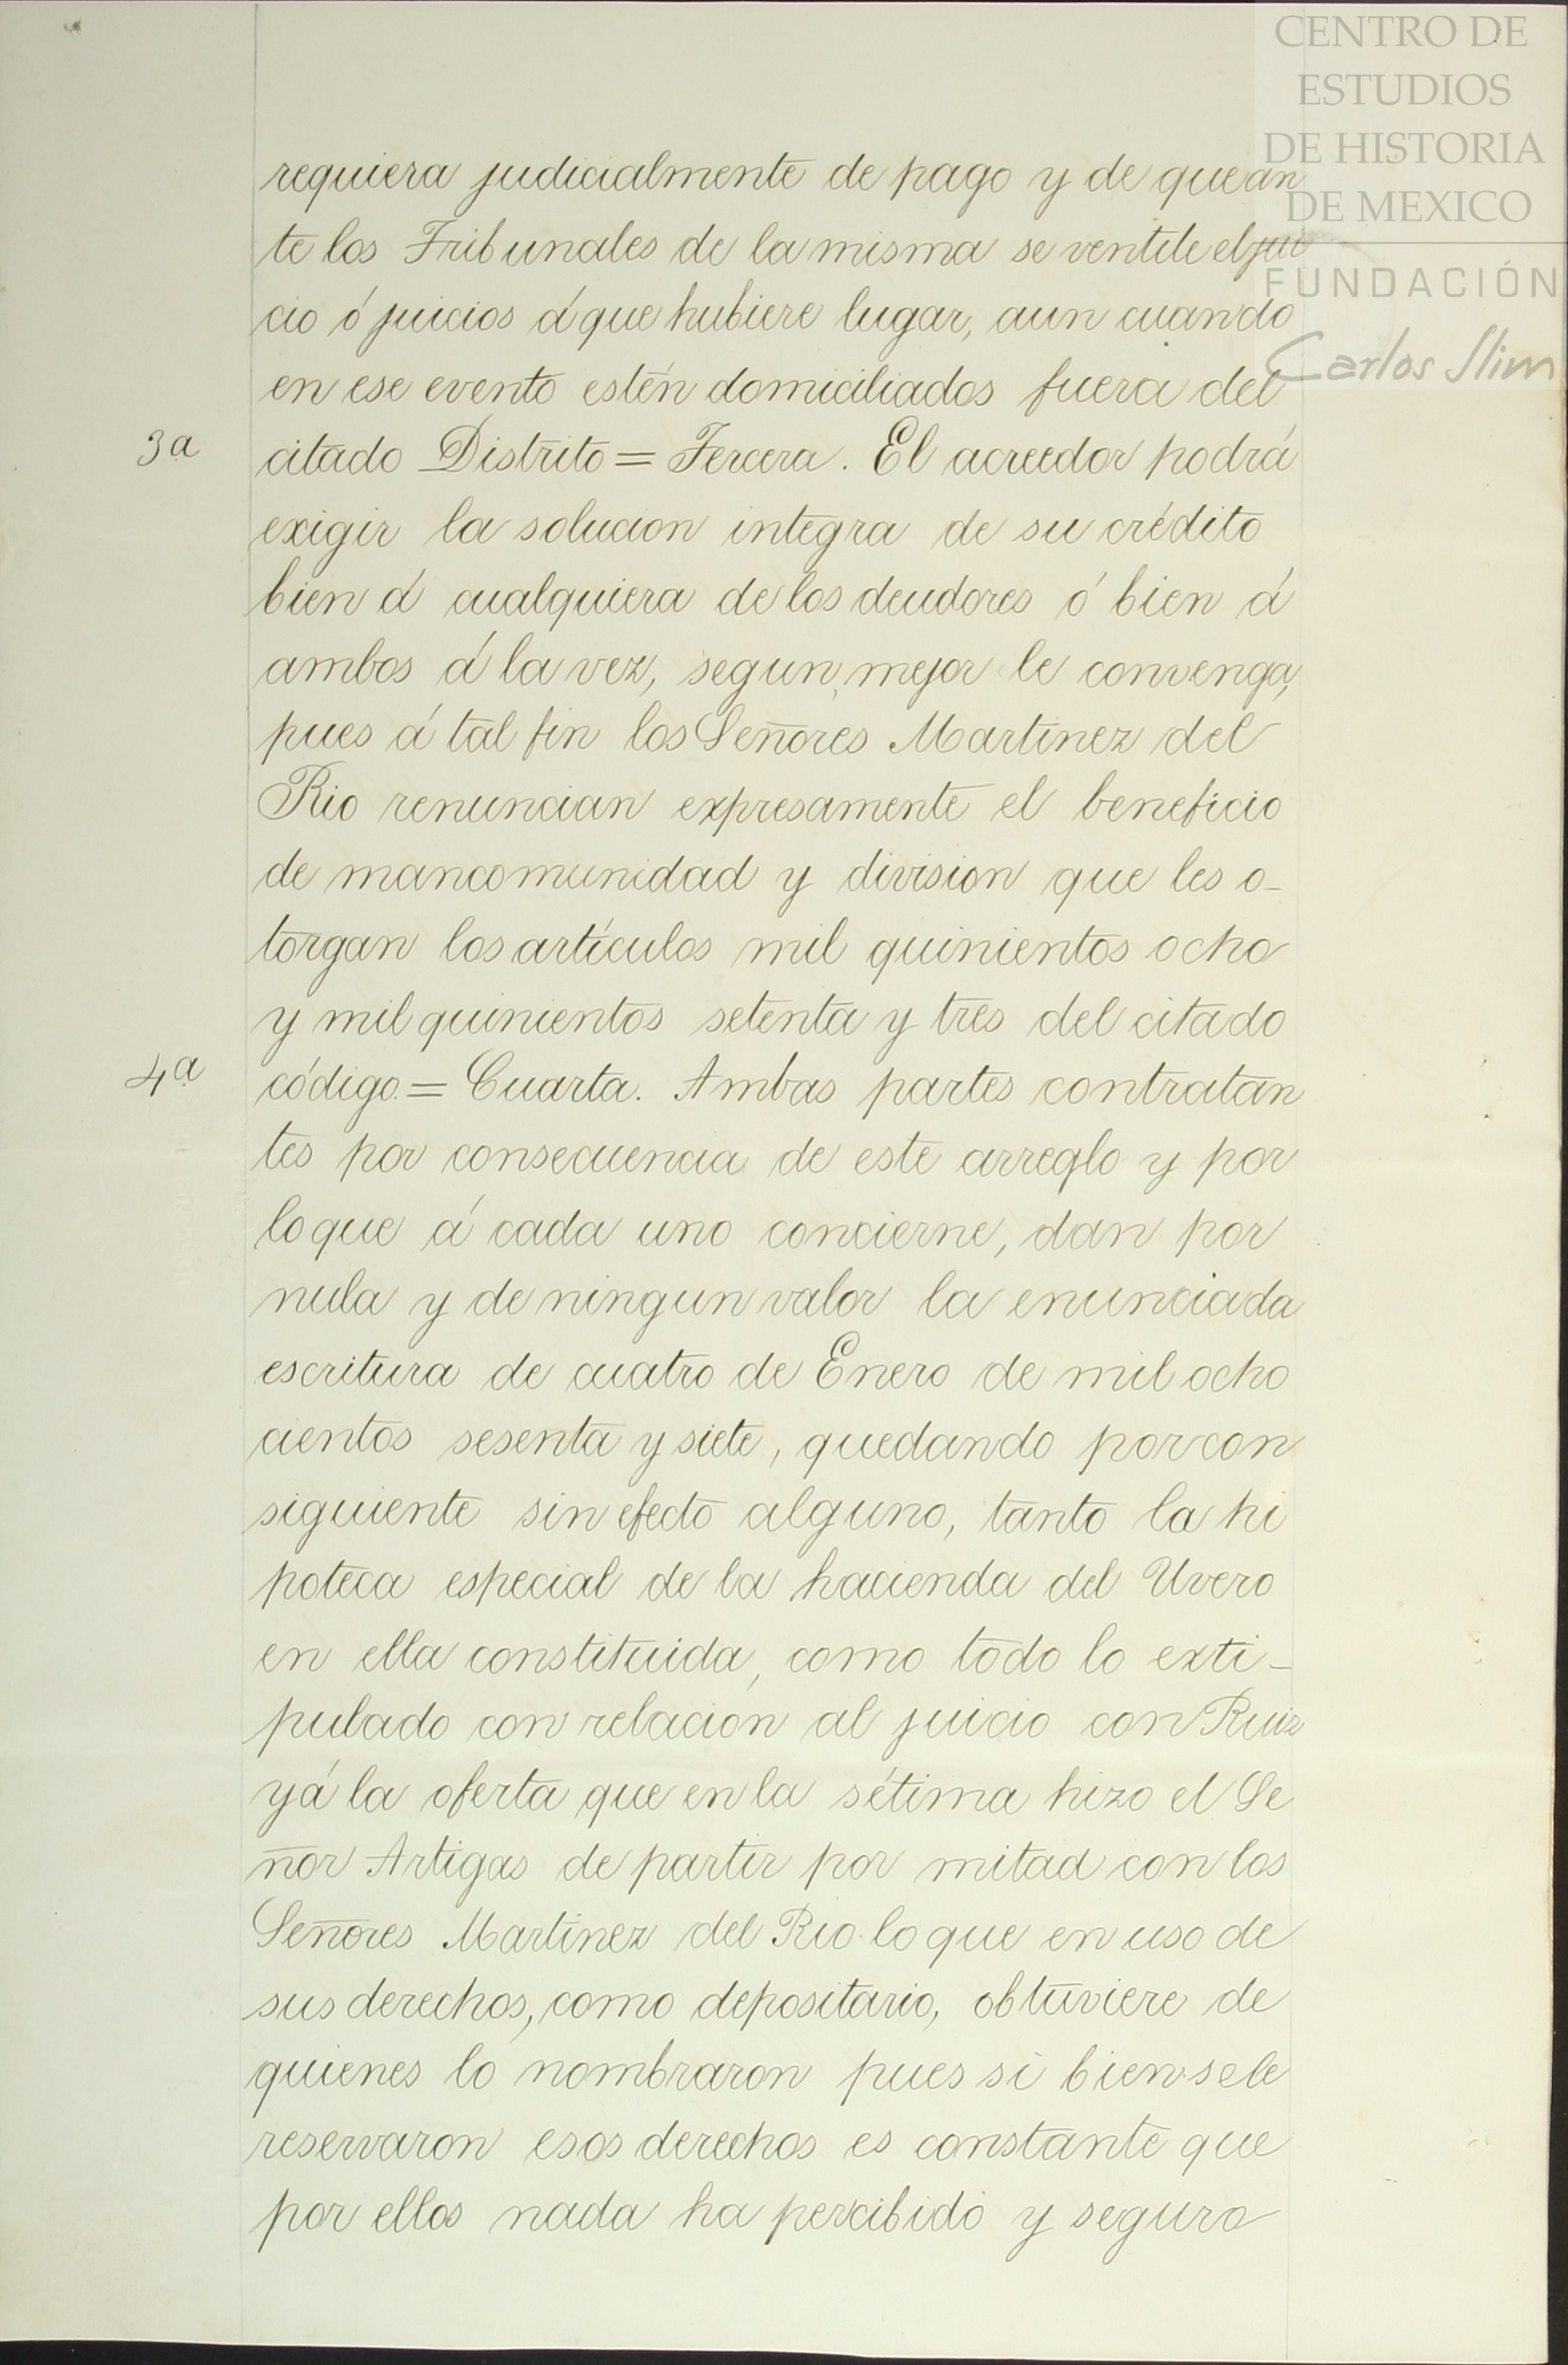 CENTRO DE
ESTUDIOS
DE HISTORIA
DE MEXICO
FUNDACIÓN
Carlos Slim
requiera judicialmente de pago y de que an
te los Tribunales de la misma se ventile el jui
cio ó juicios á que hubiere lugar, aun cuando
en ese evento estén domiciliados fuera del
3a citado Distrito = Tercera. El acreedor podrá
exigir la solucion integra de su crédito
bien á cualquiera de los deudores ó bien á
ambos á la vez, segun mejor le convenga,
pues á tal fin los Señores Martinez del
Rio renuncian expresamente el beneficio
de mancomunidad y division que les o-
torgan los artículos mil quinientos ocho
y mil quinientos setenta y tres del citado
4a código. = Cuarta. Ambas partes contratan
tes por consecuencia de este arreglo y por
lo que á cada uno concierne, dan por
nula y de ningun valor la enunciada
escritura de cuatro de Enero de mil ocho
cientos sesenta y siete, quedando por con
siguiente sin efecto alguno, tanto la hi
poteca especial de la hacienda del Uvero
en ella constituida, como todo lo exti-
pulado con relacion al juicio con Ruiz
y á la oferta que en la sétima hizo el Se
ñor Artigas de partir por mitad con los
Señores Martinez del Rio lo que en uso de
sus derechos, como depositario, obtuviere de
quienes lo nombraron pues si bien se le
reservaron esos derechos es constante que
por ellos nada ha percibido y seguro